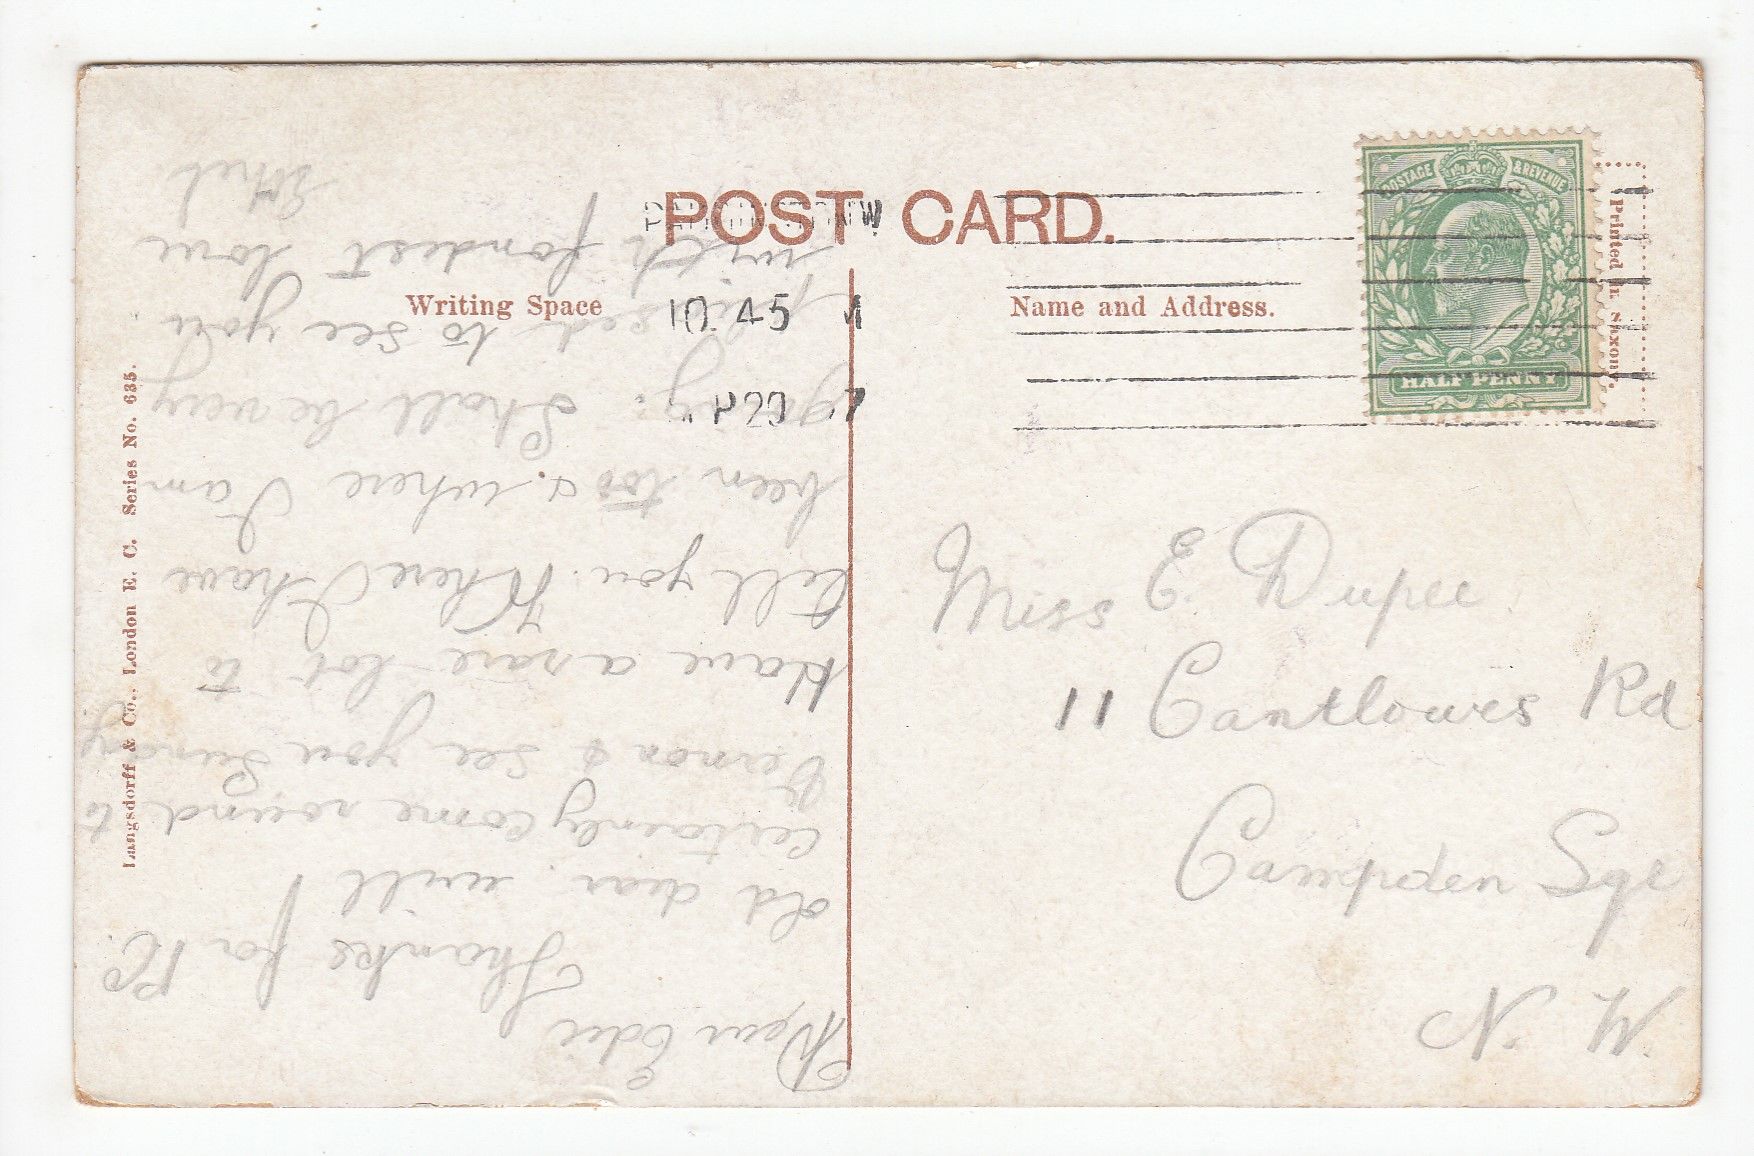 POST CARD.
Writing Space
Name and Address.
PADDINGTON W
10. 45
AP 20 7
POSTAGE & REVENUE
HALF PENNY
Printed in Saxony.
Langsdorff & Co., London E. C. Series No. 635.
Miss E Dupee
11 Cantlowes Rd
Campden Sqe
N. W.
Dear Edie
Thanks for PC.
old dear. will
certainly come round to
Vernon & see you Sunday.
Have a rare lot to
tell you. Where I have
been too &. where I am
going. Shall be very
pleased to see you
with fondest love
Ethel